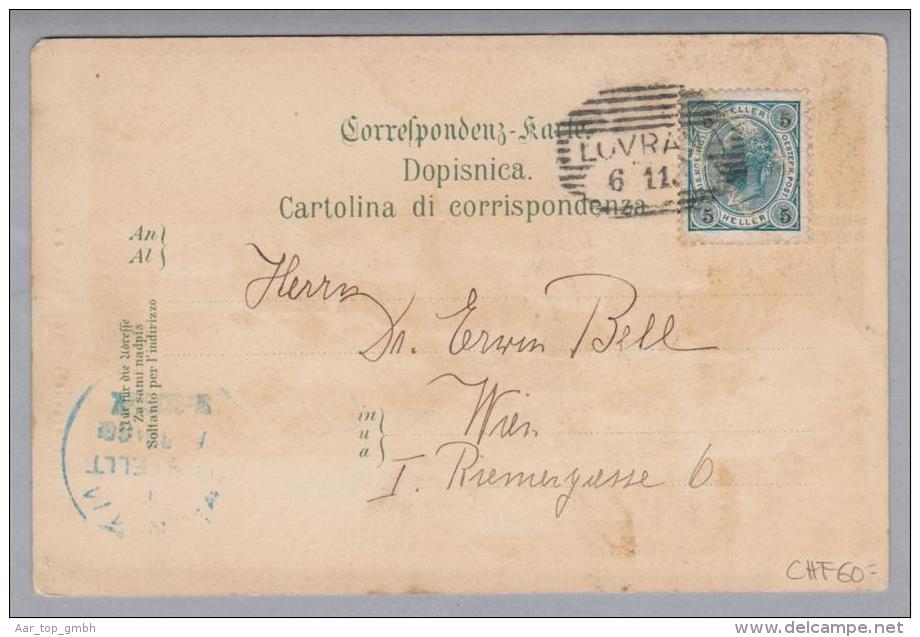 Correspondenz-Karte.
Dopisnica.
Cartolina di corrispondenza
LOVRA
6 11
5 HELLER 5
5 HELLER 5
An
Al
Nur für die Adresse
Za sami nadpis
Soltanto per l'indirizzo
Herrn
Dr. Erwin Bell
in
u
a
Wien
I. Riemergasse 6
CHF 60=
Aar_top_gmbh
www.delcampe.net